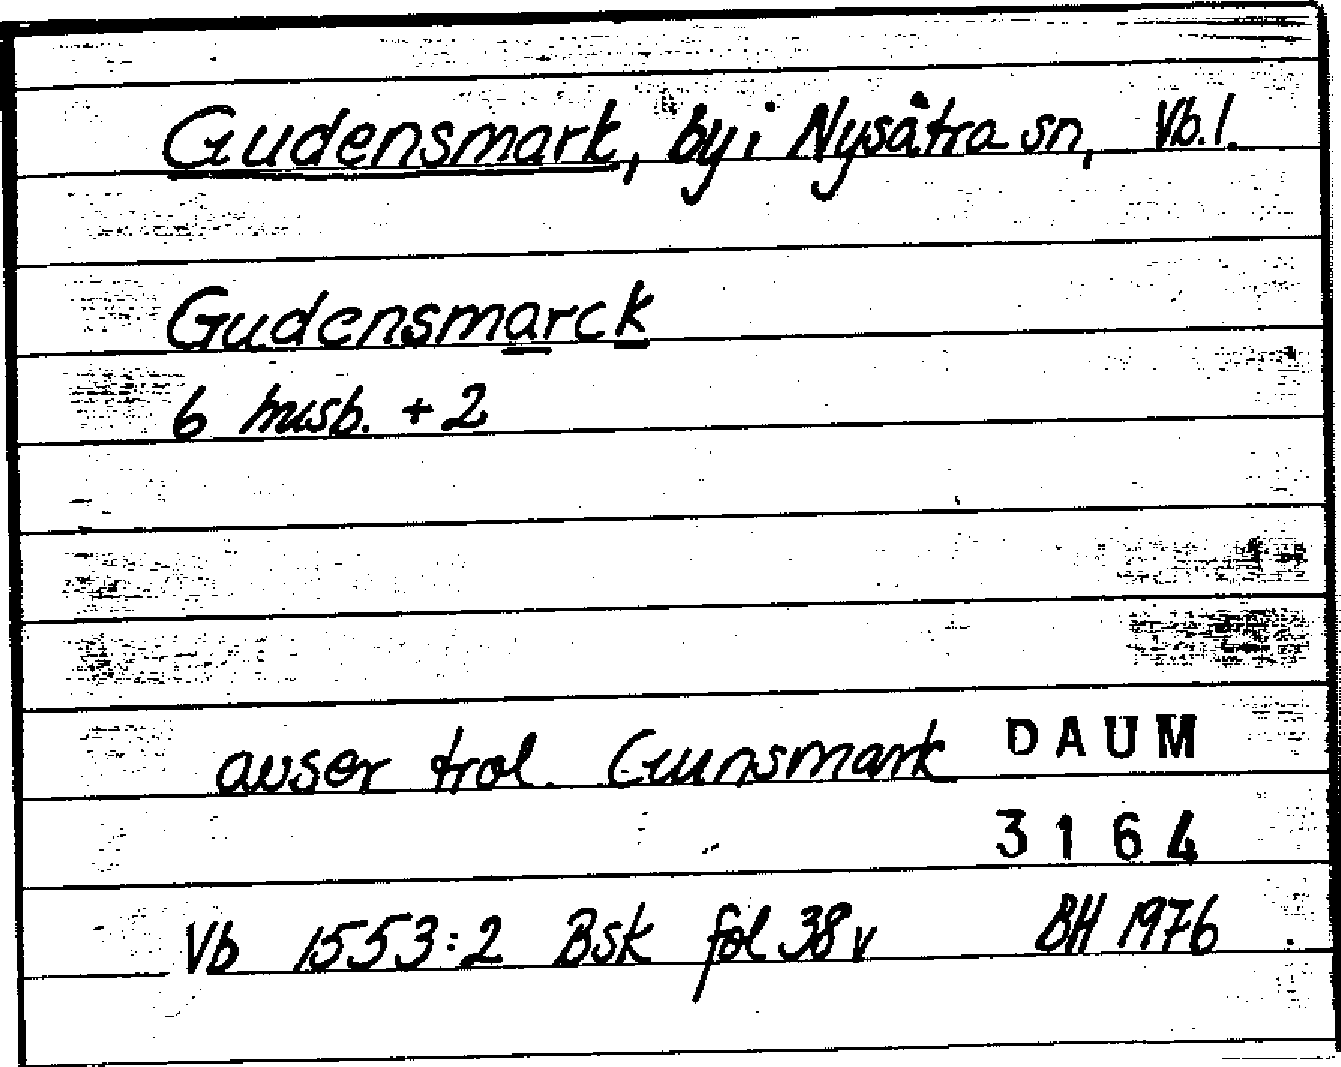 Gudensmark, by i Nysätra sn, Vb. l.
Gudensmarck
6 husb. + 2
avser trol. Gunsmark
DAUM
3164
Vb 1553:2 Bsk fol 38 v BH 1976